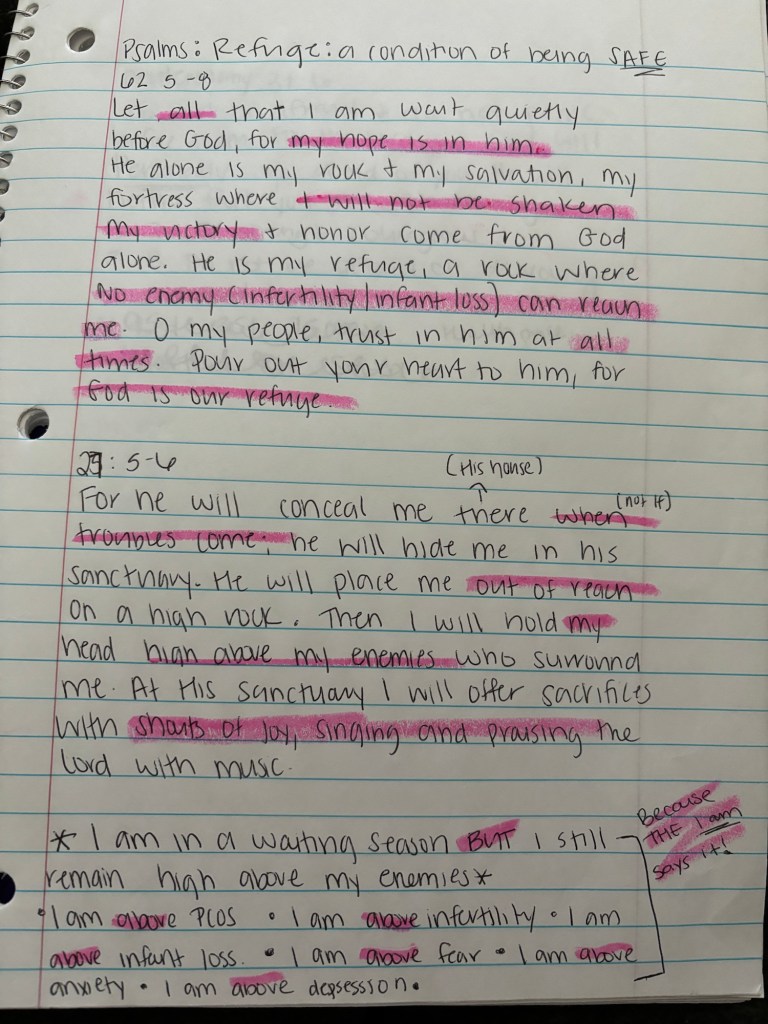 Psalms: Refuge: a condition of being SAFE
62 5-8
Let all that I am wait quietly
before God, for my hope is in him.
He alone is my rock + my salvation, my
fortress where I will not be shaken
My victory + honor come from God
alone. He is my refuge, a rock where
No enemy (infertility/infant loss) can reach
me. O my people, trust in him at all
times. Pour out your heart to him, for
God is our refuge.
27: 5-6
(His house)
For he will conceal me there when (not if)
troubles come; he will hide me in his
sanctuary. He will place me out of reach
on a high rock. Then I will hold my
head high above my enemies who surround
me. At His sanctuary I will offer sacrifices
with shouts of joy, singing and praising the
Lord with music.
* I am in a waiting season BUT I still
remain high above my enemies*
Because
THE I am
says it!
• I am above PCOS • I am above infertility • I am
above infant loss. • I am above fear • I am above
anxiety • I am above depsession.